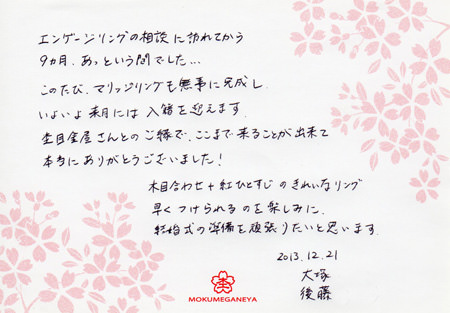 エンゲージリングの相談に訪れてから
9カ月、あっという間でした…
このたび、マリッジリングも無事に完成し
いよいよ来月には入籍を迎えます。
杢目金屋さんとのご縁で、ここまで来ることが出来て
本当にありがとうございました！
木目合わせ+紅ひとすじのきれいなリング
早くつけられるのを楽しみに、
結婚式の準備を頑張りたいと思います。
2013.12.21
大塚
後藤
MOKUMEGANEYA